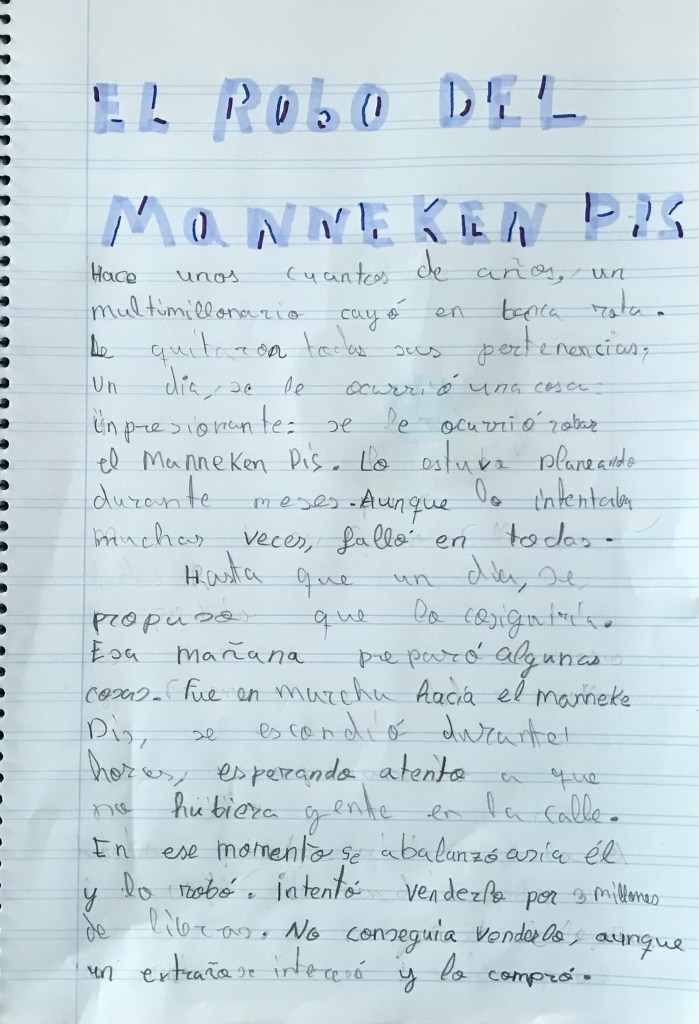 EL ROBO DEL
MANNEKEN PIS
Hace unos cuantos de años, un
multimillonario cayó en banca rota.
Le quitaron todas sus pertenencias;
Un día, se le ocurrió una cosa
inpresionante: se le ocurrió robar
el Manneken Pis. Lo estuvo planeando
durante meses. Aunque lo intentaba
muchas veces, falló en todas.
Hasta que un día, se
propuso que lo cosiguiría.
Esa mañana preparó algunas
cosas. Fue en marcha hacia el manneke
Pis, se escondió durante
horas, esperando atento a que
no hubiera gente en la calle.
En ese momento se abalanzó asia él
y lo robó. intentó venderlo por 3 millones
de libras. No conseguia venderlo, aunque
un extraño se interesó y lo compró.